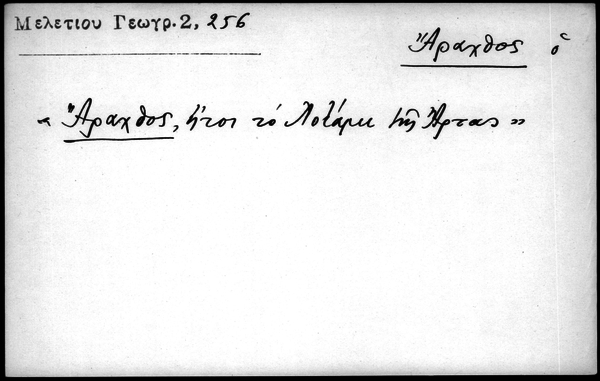 Μελετίου Γεωγρ. 2, 256
Ἄραχθος ὁ
« Ἄραχθος, ἤτοι τὸ Ποτάμι τῆς Ἄρτας »